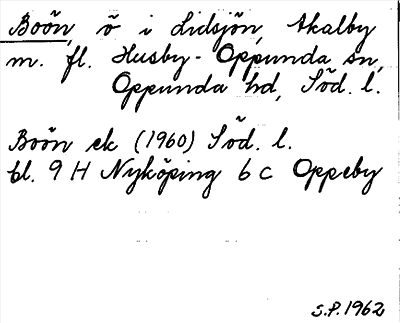 Boön, ö i Lidsjön, Akalby
m. fl. Husby-Oppunda sn,
Oppunda hd, Söd. l.
Boön ek (1960) Söd. l.
bl. 9 H Nyköping 6 c Oppeby
S.P. 1962